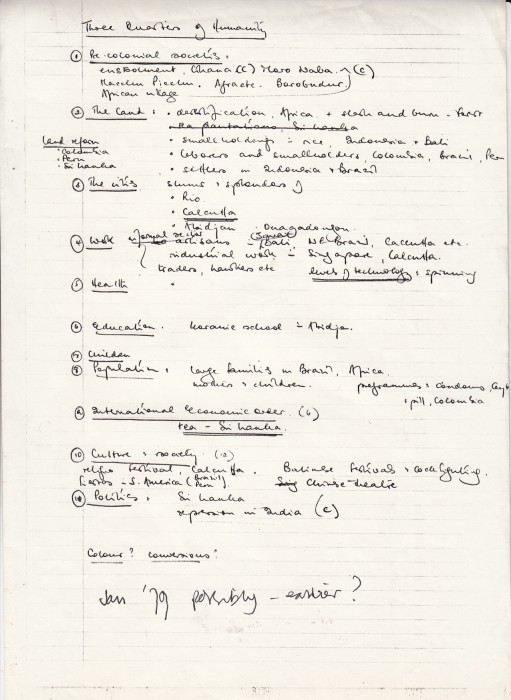 Three Quarters of Humanity
① Pre-colonial societies.
enstoolment, Ghana (c) Moro Naba. (c)
Macchu Picchu. Borobudur.
African village
② The Land: desertification, Africa. + slash and burn - Perou
tea plantations, Sri Lanka
land reform
· smallholdings - rice, Indonesia + Bali
· Colombia
· Peru
· Sri Lanka
· labourers and smallholders, Colombia, Brazil, Peru
· settlers in Indonesia + Brazil
③ The cities slums + splendors of
· Rio.
· Calcutta
· Abidjan · Ouagadougou
④ Work informal sector artisans - Bali, NE Brazil, Calcutta etc.
industrial work - Singapore, Calcutta.
traders, hawkers etc levels of technology: spinning
⑤ Health ·
⑥ Education. koranic school - Abidja.
⑦ Children
⑧ Population: large families in Brazil, Africa.
mothers + children. programmes: condoms,
+ pill, Colombia
⑨ International Economic order. (6)
tea - Sri Lanka.
⑩ Culture + society (12)
festival, Calcutta. Balinese festivals + cockfighting.
- S. America (Brazil Peru) Chinese theatre
⑪ Politics. Sri Lanka
repression in India (c)
Colour? conversions?
Jan '79 possibly - earlier?